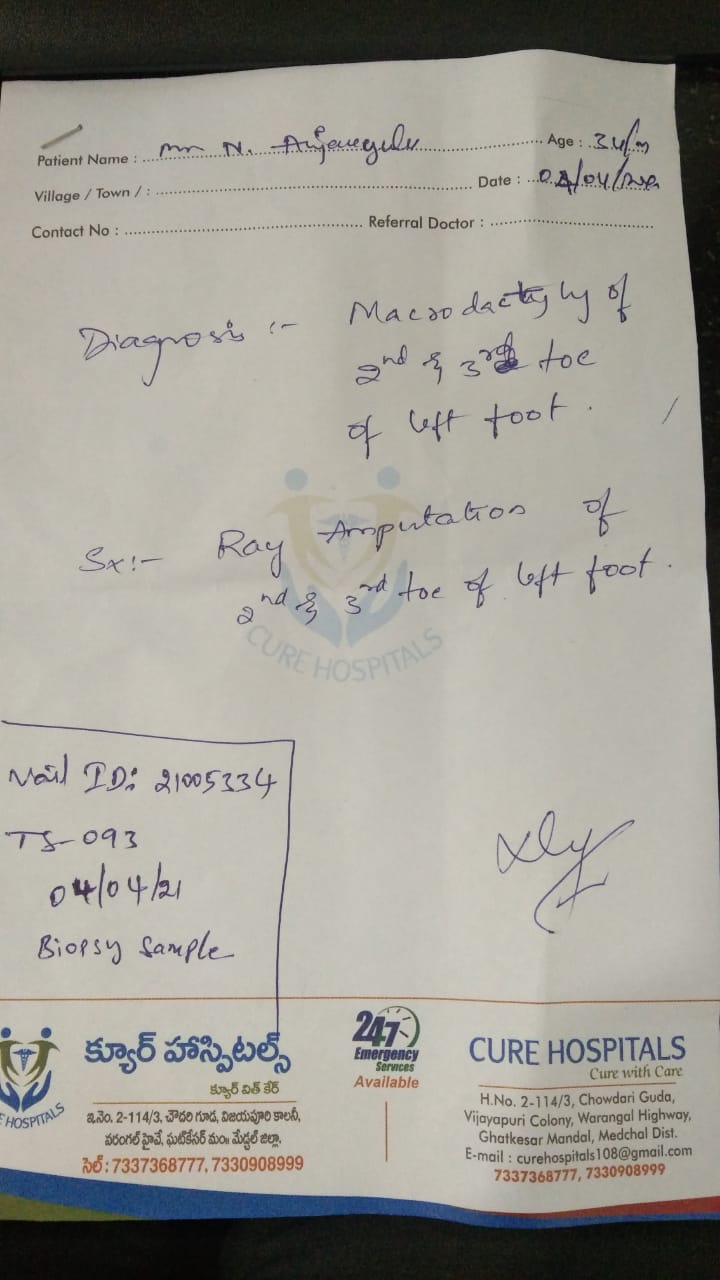 Patient Name : Mr N. Anjaneyulu Age : 34/m
Village / Town / : Date : 04/04/
Contact No : Referral Doctor :
Diagnosis :- Macrodactyly of
2nd & 3rd toe
of left foot.
Sx:- Ray Amputation of
2nd & 3rd toe of left foot.
CURE HOSPITALS
ID: 21005334
TS-093
04/04/21
Biopsy Sample
క్యూర్ హాస్పిటల్స్
క్యూర్ విత్ కేర్
ఇ.నెం. 2-114/3, చౌదరి గూడ, విజయపూరి కాలనీ,
వరంగల్ హైవే, ఘట్‌కేసర్ మం॥ మేడ్చల్ జిల్లా.
సెల్ : 7337368777, 7330908999
HOSPITALS
24/7
Emergency
Services
Available
CURE HOSPITALS
Cure with Care
H.No. 2-114/3, Chowdari Guda,
Vijayapuri Colony, Warangal Highway,
Ghatkesar Mandal, Medchal Dist.
E-mail : curehospitals108@gmail.com
7337368777, 7330908999